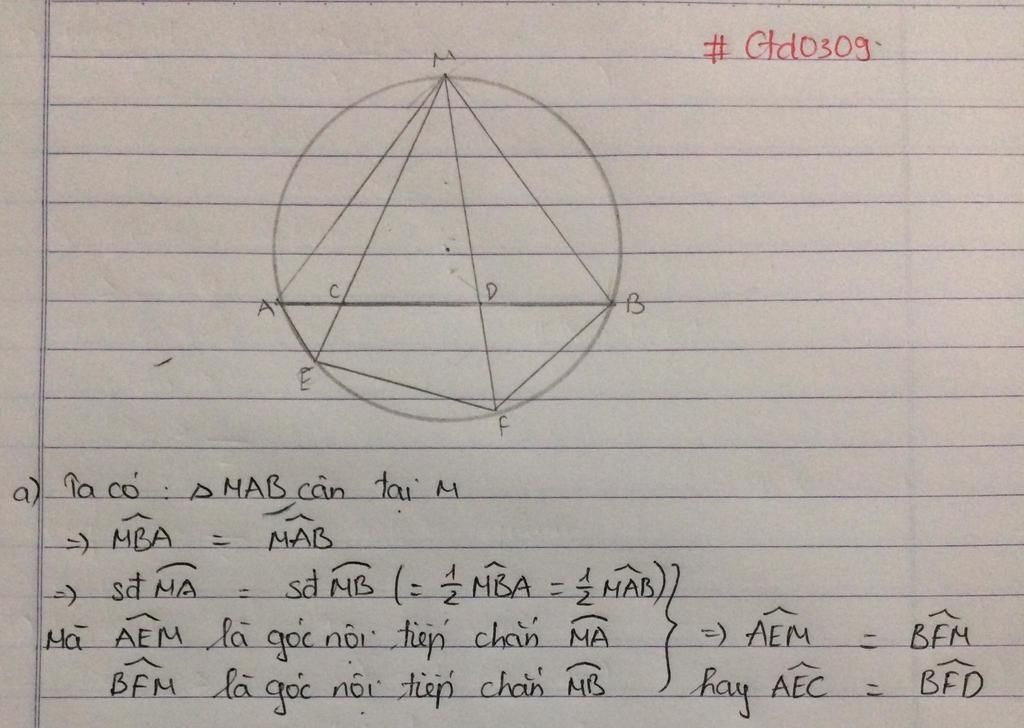 # Gtd0309.
M
A C D B
E
F
a) Ta có : △ MAB cân tại M
=) \widehat{MBA} = \widehat{MAB}
=) sđ \overset{\frown}{MA} = sđ \overset{\frown}{MB} (= \frac{1}{2} \widehat{MBA} = \frac{1}{2} \widehat{MAB})
Mà \widehat{AEM} là góc nội tiếp chắn \overset{\frown}{MA} } =) \widehat{AEM} = \widehat{BFM}
\widehat{BFM} là góc nội tiếp chắn \overset{\frown}{MB} hay \widehat{AEC} = \widehat{BFD}